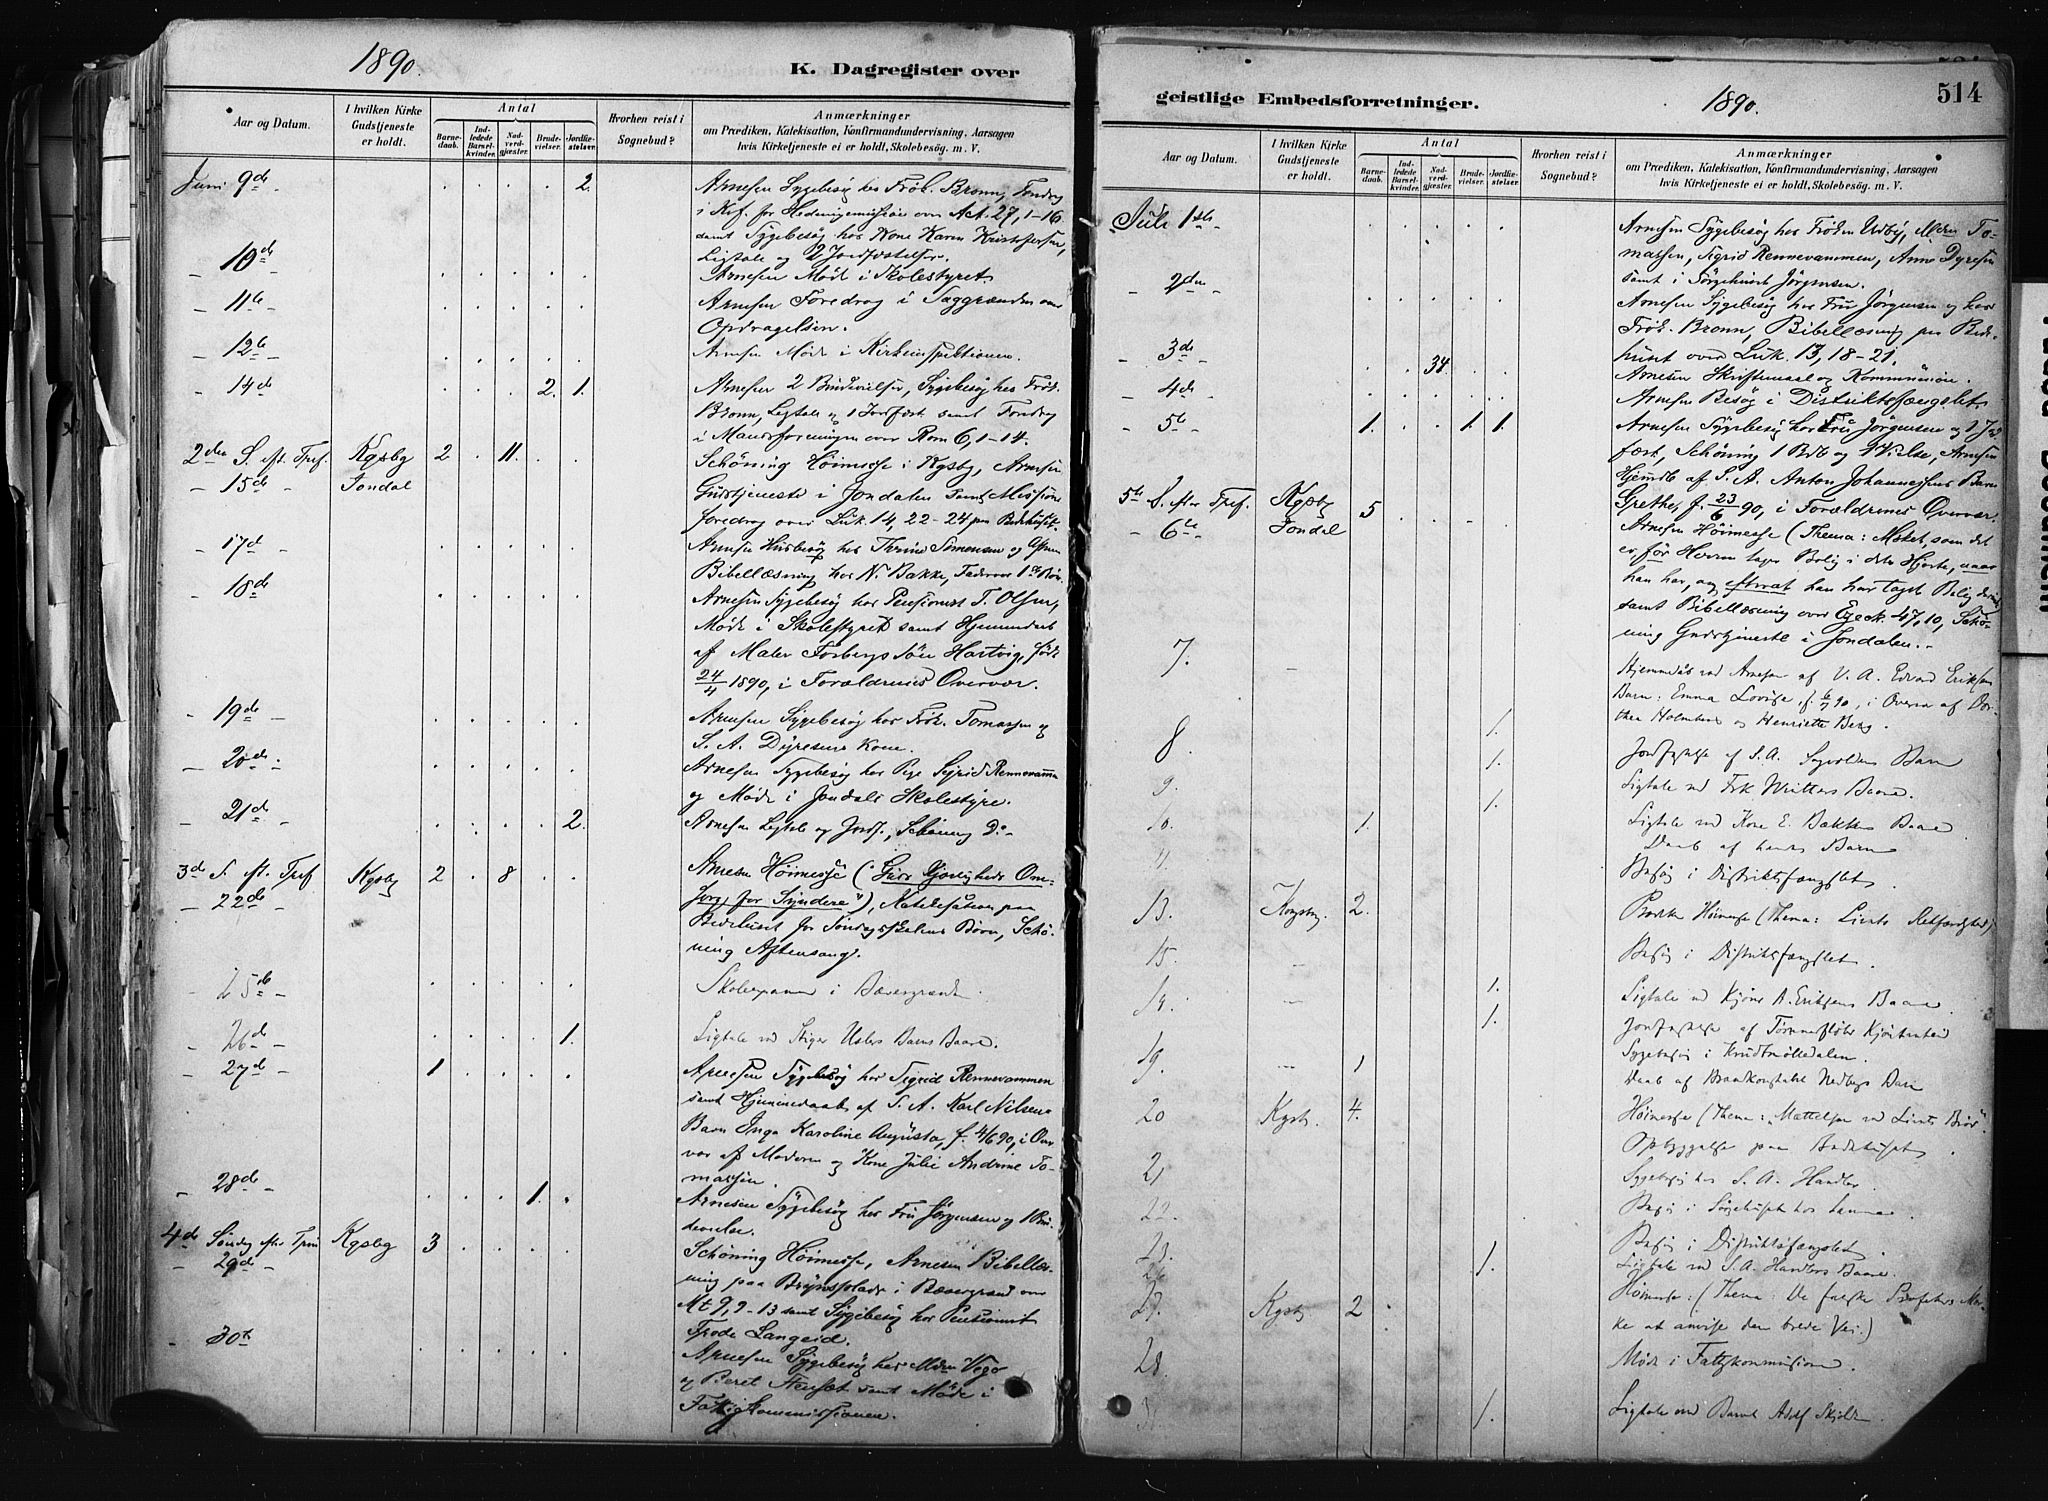 1890.
K. Dagregister over
Aar og Datum.
I hvilken Kirke Gudstjeneste er holdt.
Antal
Barnedaab.
Indledede Barselkvinder.
Nadverdgjæster.
Brudevielser.
Jordfæstelser.
Hvorhen reist i Sognebud?
Anmærkninger
om Prædiken, Katekisation, Konfirmandundervisning, Aarsagen
hvis Kirketjeneste ei er holdt, Skolebesøg. m. V.
Juni 9de 2. Arnesen Sygebesøg hos Frøk. Bronn, Foredrag
i Krf. for Hedningemission over Act. 27, 1-16
samt Sygebesøg hos Kone Karen Kristoffersen,
Ligtale og 2 Jordfæstelser.
- 10de - Arnesen Møde i Skolestyret.
- 11te - Arnesen Foredrag i Saggrænden om
Opdragelsen.
- 12te - Arnesen Møde i Kirkeinspektionen.
- 14de 2. 1. Arnesen 2 Brudevielser, Sygebesøg hos Frøk.
Bronn, Ligtale og 1 Jordfæst. samt Foredrag
i Mandsforeningen over Rom 6, 1-14.
2den S. eft. Tref. Kgsbg 2 11. Schöning Høimesse i Kgsbg, Arnesen
- 15de - Jondal Gudstjeneste i Jondalen samt Missions
foredrag over Luk. 14, 22-24 paa Bedehuset.
- 17de - Arnesen Husbesøg hos Thrine Simensen og
Bibellæsning hos N. Bakke,
- 18de Arnesen Sygebesøg hos Pensionist T. Olsen,
Møde i Skolestyret samt Hjemmedaab
af Maler Forbergs Søn Hartvig, født
24/4 1890, i Forældrenes Overvær.
- 19de - Arnesen Sygebesøg hos Frøk. Tomassen og
S. A. Dyresens Kone.
- 20de - Arnesen Sygebesøg hos Pige Sigrid Rennevammen
og Møde i Jondals Skolestyre.
- 21de - 2. Arnesen Ligtale og Jordf., Schöning Do -
3de S. eft. Tref Kgsbg 2 8 Arnesen Høimesse ("Guds Om-
- 22de - sorg for Syndere"), Katekisation paa
Bedehuset for Søndagsskolens Børn, Schö-
ning Aftensang.
- 25de - Skoleexamen i Bævergrænden.
- 26de 1. Ligtale ved Stiger Uslers Barns Baare.
- 27de 1. Arnesen Sygebesøg hos Sigrid Rennevammen
samt Hjemmedaab af S. A. Karl Nilsens
Barn Inga Karoline Augusta, f. 4/6 90, i Over
vær af Moderen og Kone Julie Andrine To-
massen.
- 28de - 1. Arnesen Sygebesøg hos Fru Jørgensen og 1 Bru-
devielse.
4de Søndag efter Trin Kgsbg 3 Schöning Høimesse, Arnesen Bibellæs-
- 29de - ning paa i Bævergrænd over
Mt 9, 9-13 samt Sygebesøg hos Pensionist
Frode Langeid.
- 30te Arnesen Sygebesøg hos Vego
og Beret Stensæt samt Møde i
Fattigkommissionen.
geistlige Embedsforretninger.
1890.
514
Aar og Datum.
I hvilken Kirke Gudstjeneste er holdt.
Antal
Barnedaab.
Indledede Barselkvinder.
Nadverdgjæster.
Brudevielser.
Jordfæstelser.
Hvorhen reist i Sognebud?
Anmærkninger
om Prædiken, Katekisation, Konfirmandundervisning, Aarsagen
hvis Kirketjeneste ei er holdt, Skolebesøg. m. V.
Juli 1ste Arnesen Sygebesøg hos Frøken Udby, To-
massen, Sigrid Rennevammen, Anne Dyresen
samt i Sørgehuset Jørgensen.
- 2den - Arnesen Sygebesøg hos Fru Jørgensen og hos
Frøk. Bronn, Bibellæsning paa Bede-
huset over Luk. 13, 18-21.
- 3de - 34. Arnesen Skriftemaal og Kommunion.
- 4de - Arnesen Besøg i Distriktsfængslet.
- 5te - 1. 1. 1. Arnesen Sygebesøg hos Fru Jørgensen og 1 Jord
fæst, Schöning 1 Bdb og 1 Vielse, Arnesen
Hjemdb af S. A. Anton Johannessens Barn
5te S. efter Tref. Kgsbg 5 Grethe, f. 23/6 90, i Forældrenes Overvær.
- 6te - Jondal Arnesen Høimesse (Thema: Målet, som det
er, før Herren tager Bolig i dets Hjerte, naar
han har, og efterat han har taget Bolig
samt Bibellæsning over Ezek. 47, 10, Schö-
ning Gudstjeneste i Jondalen.
7. - Hjemmedåb ved Arnesen af V. A. Edvard Eriksens
Barn: Emma Lovise, f. 6/7 90, i Overv. af Dor-
thea Holmboe og Henriette Berg.
8. 1. Jordfæstelse af S. A. Barn
9. 1. Ligtale ved Frk Baare.
10. 1. 1. Ligtale ved Kone E. Bakkes Baare
Daab af hendes Barn
11. Besøg i Distriktsfængslet.
13. Kongsbg. 2. Høimesse (Thema: Livets Retfærdighed)
15. - Besøg i Distriktsfængslet.
14. - 1. Ligtale ved A. Eriksens Baare.
1. Jordfæstelse af
19. - 1 Sygebesøg i Krudtmølledalen.
Daab af Brandkonstabel Nedbergs Barn
20 Kgsb. 4. Høimesse (Thema: Mættelsen ved Livets Brød".
Opbyggelse paa Bedehuset.
21 Sygebesøg hos S. A. Handler.
22. Besøg i Sørgehuset hos
23. 1. Besøg i Distriktsfængslet.
26 Ligtale ved S. A. Handlers Baare.
27. Kgsb. 2 Høimesse: (Thema: De falske Profeters Mær-
ke at anvise den brede Vei.)
28. Møde i Fattigkommissionen.
31. 1. Ligtale over Barnet Adolf Skjold.